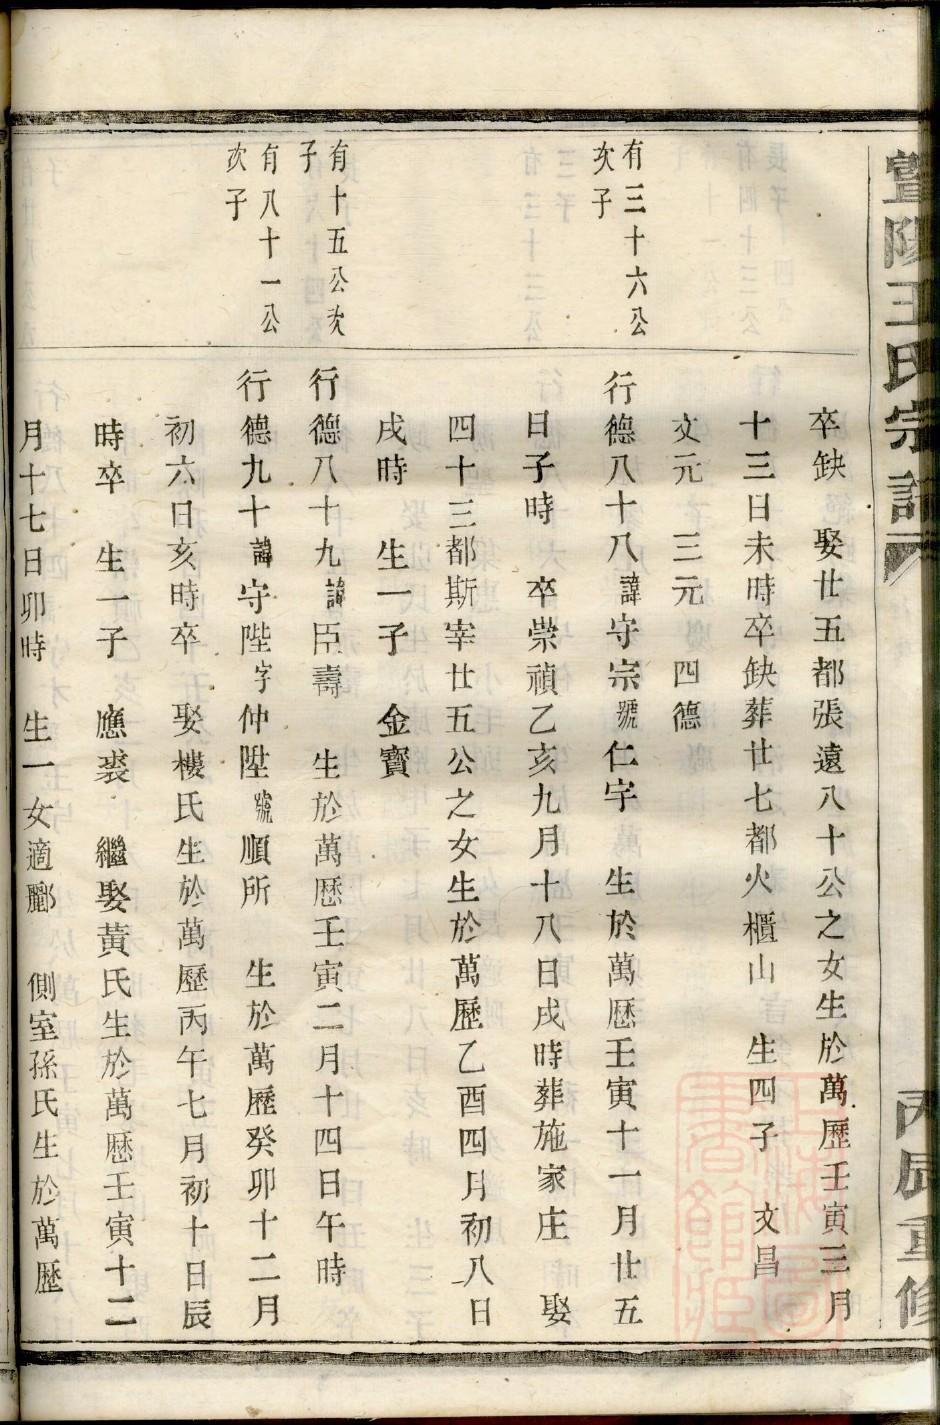 暨陽王氏宗譜
丙辰重修
卒缺 娶廿五都張遠八十公之女生於萬曆壬寅三月
十三日未時卒缺葬廿七都火櫃山 生四子 文昌
文元 三元 四德
有三十六公
次子
行德八十八諱守宗號仁宇 生於萬曆壬寅十一月廿五
日子時 卒崇禎乙亥九月十八日戌時葬施家庄 娶
四十三都斯宰廿五公之女生於萬歷乙酉四月初八日
戌時 生一子 金寶
有十五公次
子
行德八十九諱臣壽 生於萬曆壬寅二月十四日午時
有八十一公
次子
行德九十諱守陛字仲陞號順所 生於萬歷癸卯十二月
初六日亥時卒 娶樓氏生於萬歷丙午七月初十日辰
時卒 生一子 應裘 繼娶黃氏生於萬曆壬寅十二
月十七日卯時 生一女適酈 側室孫氏生於萬歷